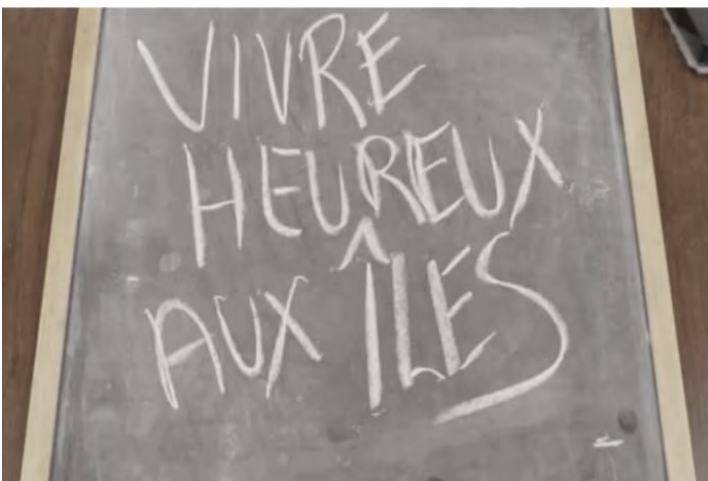 VIVRE
HEUREUX
AUX ÎLES